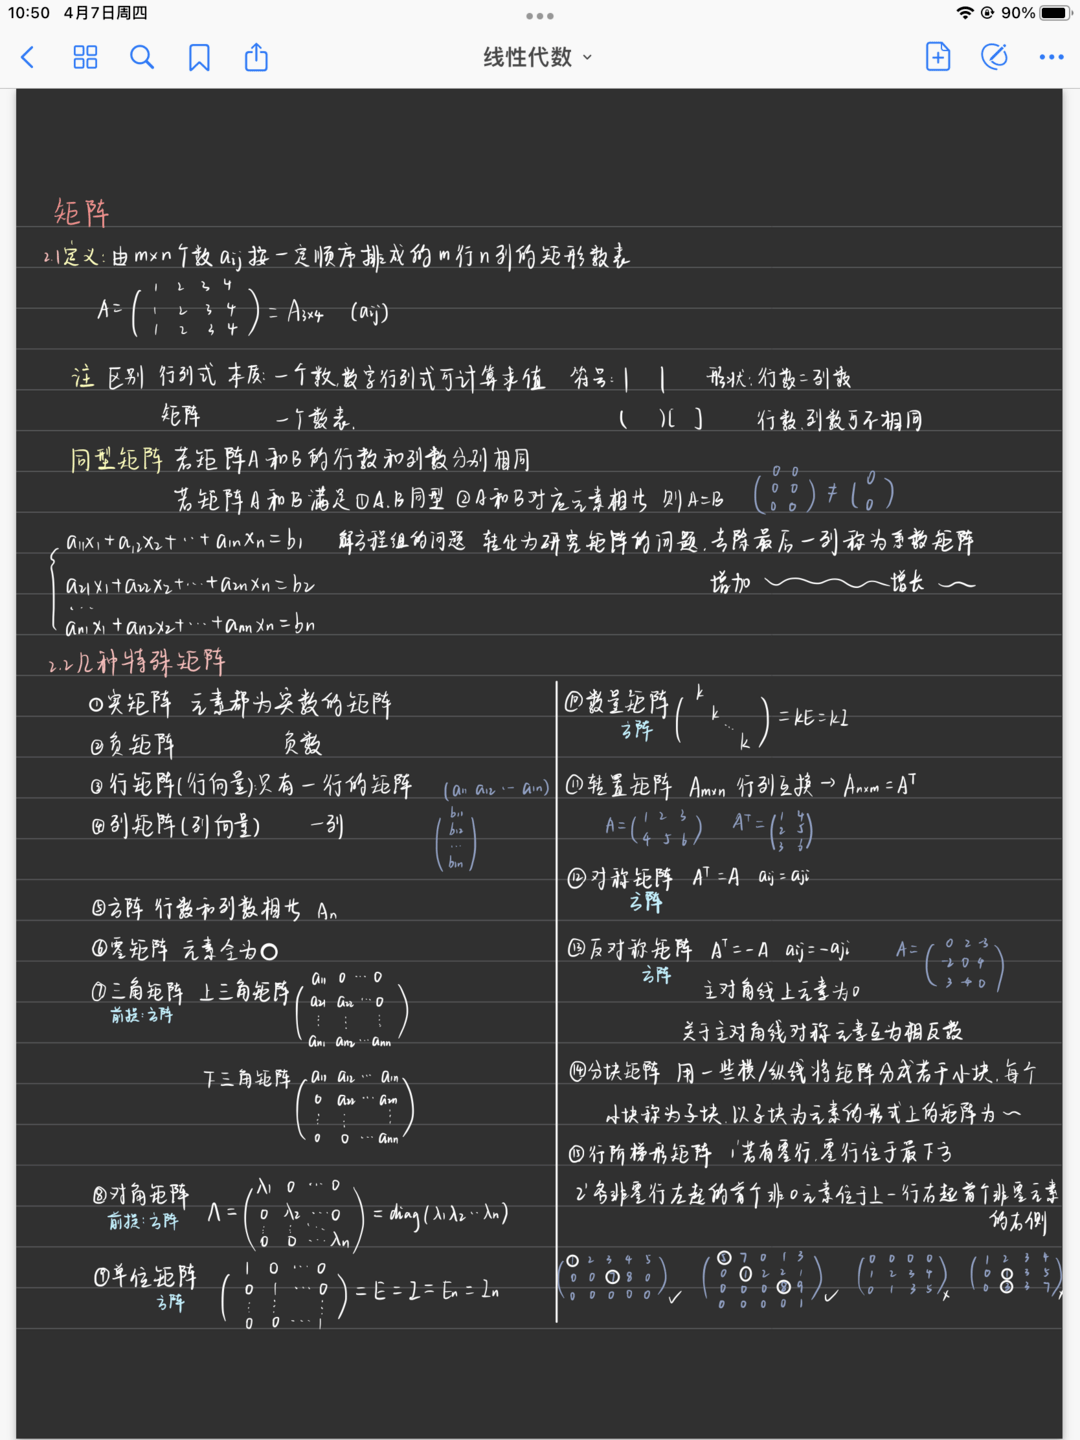 10:50 4月7日周四 90%
线性代数
矩阵
2.1定义:由m×n个数aij按一定顺序排成的m行n列的矩形数表
A=( 1 2 3 4
1 2 3 4
1 2 3 4 ) = A3×4 (aij)
注 区别 行列式 本质:一个数,数字行列式可计算求值 符号:| | 形状:行数=列数
矩阵 一个数表. ( )[ ] 行数,列数可不相同
同型矩阵 若矩阵A和B的行数和列数分别相同
若矩阵A和B满足①A.B同型 ②A和B对应元素相等 则A=B
( 0 0
0 0
0 0 ) ≠ ( 0
0 )
a11x1+a12x2+…+a1nxn=b1 解方程组的问题 转化为研究矩阵的问题.去除最后一列称为系数矩阵
a21x1+a22x2+…+a2nxn=b2 增加 ~~~ 增长 ~
…
an1x1+an2x2+…+annxn=bn
2.2几种特殊矩阵
①实矩阵 元素都为实数的矩阵
②负矩阵 负数
③行矩阵(行向量):只有一行的矩阵 (a11 a12 … a1n)
④列矩阵(列向量) 一列
( b11
b12
…
b1n )
⑤方阵 行数和列数相等 An
⑥零矩阵 元素全为0
⑦三角矩阵 上三角矩阵
前提:方阵
( a11 0 … 0
a21 a22 … 0
⋮ ⋮ ⋮
an1 an2 … ann )
下三角矩阵
( a11 a12 … a1n
0 a22 … a2n
⋮ ⋮ ⋮
0 0 … ann )
⑧对角矩阵
前提:方阵
Λ=( λ1 0 … 0
0 λ2 … 0
⋮ ⋮ ⋮
0 0 … λn ) = diag(λ1 λ2 … λn)
⑨单位矩阵
方阵
( 1 0 … 0
0 1 … 0
⋮ ⋮ ⋮
0 0 … 1 ) = E = I = En = In
⑩数量矩阵
方阵
( k
k
…
k ) = kE = kI
⑪转置矩阵 Am×n 行列互换→An×m=Aᵀ
A=( 1 2 3
4 5 6 ) Aᵀ=( 1 4
2 5
3 6 )
⑫对称矩阵 Aᵀ=A aij=aji
方阵
⑬反对称矩阵 Aᵀ=-A aij=-aji
方阵
A=( 0 2 -3
-2 0 4
3 -4 0 )
主对角线上元素为0
关于主对角线对称元素互为相反数
⑭分块矩阵 用一些横/纵线将矩阵分成若干小块,每个
小块称为子块.以子块为元素的形式上的矩阵为~
⑮行阶梯形矩阵 1'若有零行,零行位于最下方
2'各非零行左起的首个非0元素位于上一行左起首个非零元素
的右侧
( 1 2 3 4 5
0 0 7 8 0
0 0 0 0 0 ) ✓
( 5 7 0 1 3
0 1 2 2 1
0 0 0 8 9
0 0 0 0 1 ) ✓
( 0 0 0 0
1 2 3 4
0 1 3 5 ) ×
( 1 2 3 4
0 1 3 5
0 2 3 7 ) ×